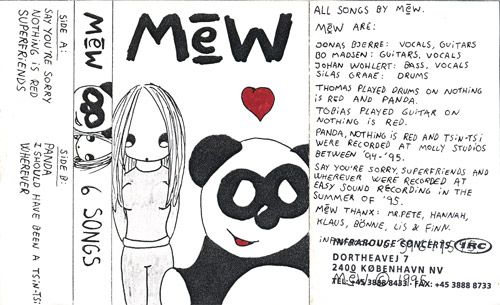 SIDE A:
SAY YOU'RE SORRY
NOTHING IS RED
SUPERFRIENDS
SIDE B:
PANDA
I SHOULD HAVE BEEN A TSIN-TSI
WHEREVER
MēW
6 SONGS
MēW
ALL SONGS BY MēW.
MēW ARE:
JONAS BJERRE: VOCALS, GUITARS
BO MADSEN: GUITARS, VOCALS
JOHAN WOHLERT: BASS, VOCALS
SILAS GRAAE: DRUMS
THOMAS PLAYED DRUMS ON NOTHING
IS RED AND PANDA.
TOBIAS PLAYED GUITAR ON
NOTHING IS RED.
PANDA, NOTHING IS RED AND TSIN-TSI
WERE RECORDED AT MOLLY STUDIOS
BETWEEN '94-'95.
SAY YOU'RE SORRY, SUPERFRIENDS AND
WHEREVER WERE RECORDED AT
EASY SOUND RECORDING IN THE
SUMMER OF '95.
MēW THANX: MR.PETE, HANNAH,
KLAUS, BÖNNE, LIS & FINN.
INFRAROUGE CONCERTS IRC
DORTHEAVEJ 7
2400 KØBENHAVN NV
MēW © 1995
TEL: +45 3888 8433 FAX: +45 3888 8733